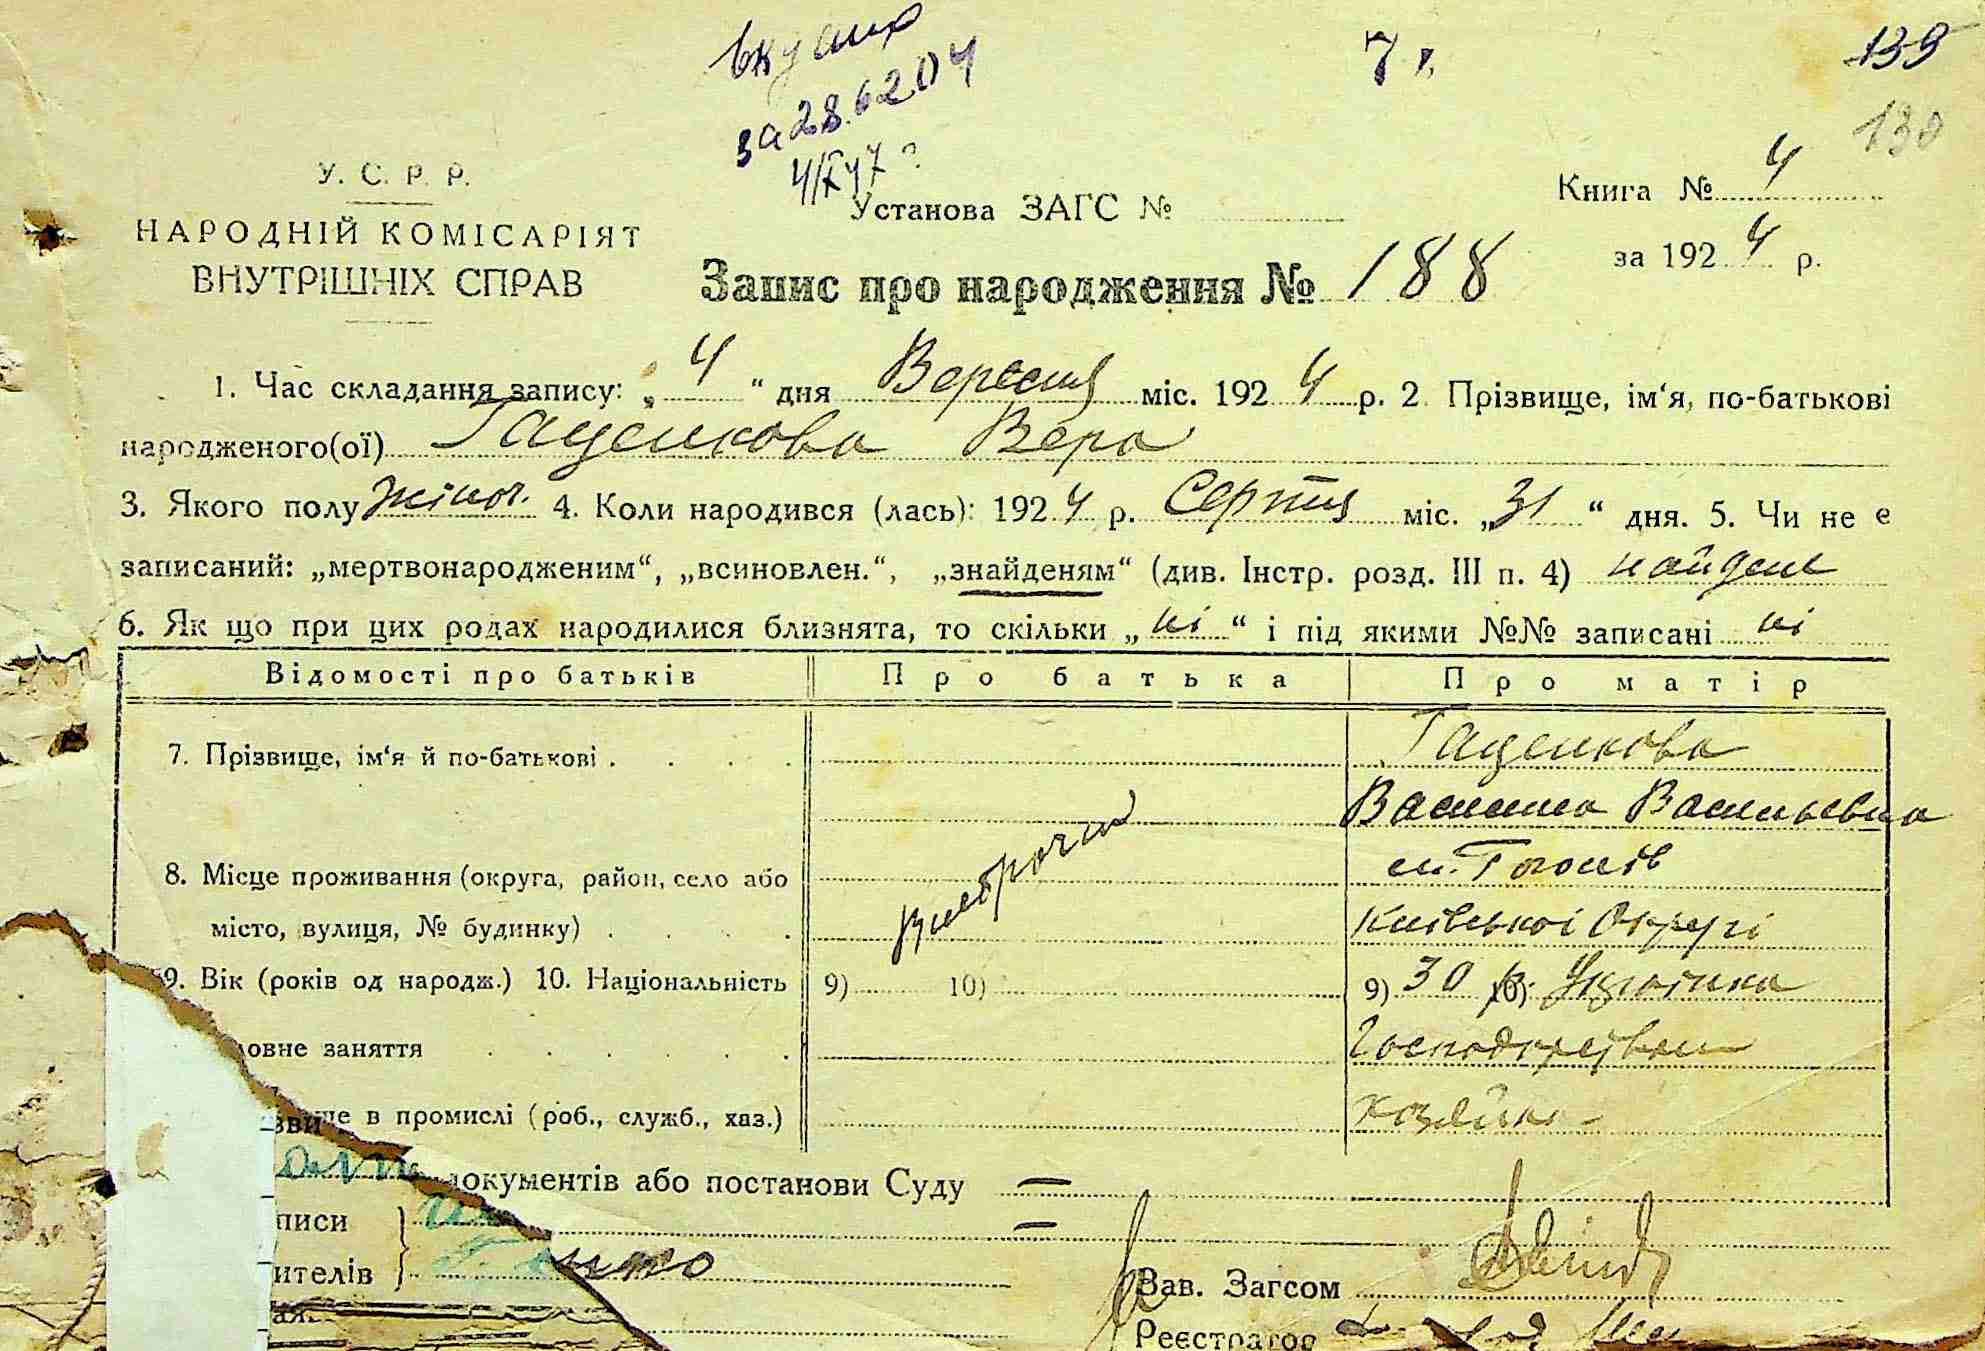 7 г. 139
за 28.6204 138
У. С. Р. Р.
НАРОДНІЙ КОМІСАРІЯТ
ВНУТРІШНІХ СПРАВ
Установа ЗАГС №
Книга № 4
за 1924 р.
Запис про народження № 188
1. Час складання запису: „4“ дня Вересня міс. 1924 р. 2. Прізвище, ім‘я, по-батькові
народженого(ої) Гаценкова Вера
3. Якого полу жіноч. 4. Коли народився (лась): 1924 р. Серпня міс. „31“ дня. 5. Чи не є
записаний: „мертвонародженим“, „всиновлен.“, „знайденям“ (див. Інстр. розд. III п. 4)
6. Як що при цих родах народилися близнята, то скільки „ні“ і під якими №№ записані ні
Відомості про батьків Про батька Про матір
7. Прізвище, ім‘я й по-батькові . . . . Гаценкова
Василина Васильевна
8. Місце проживання (округа, район, село або м. Гоголів
місто, вулиця, № будинку) . . . . Київської Округи
внебрачн
9. Вік (років од народж.) 10. Національність 9) 10) 9) 30 р. 10) Українка
ловне заняття . . . . . .
ще в промислі (роб., служб., хаз.) хазяйка
документів або постанови Суду —
писи —
ителів
Зав. Загсом
Реєстратор